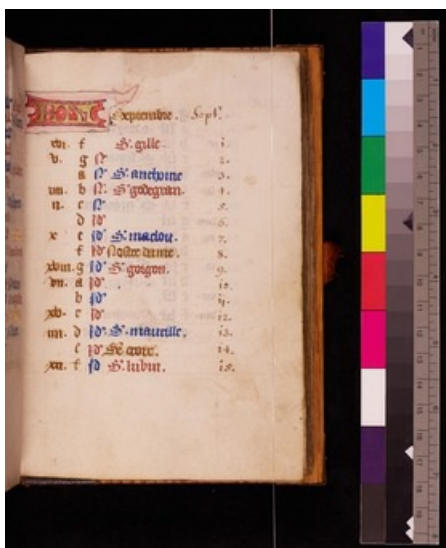 Septembre. Sept.
xvi. f S. gille. 1.
v. g N 2.
a N S. anthoine 3.
b N S. godegran. 4.
ii. c N 5.
d Id 6.
x e Id S. maclou. 7.
f Id Nostre dame. 8.
xviii. g Id S. gorgon. 9.
vii. a Id 10.
b Id 11.
xv. c Id 12.
iiii. d Id S. maurille. 13.
e Id Ste croix. 14.
xii. f Id S. lubin. 15.